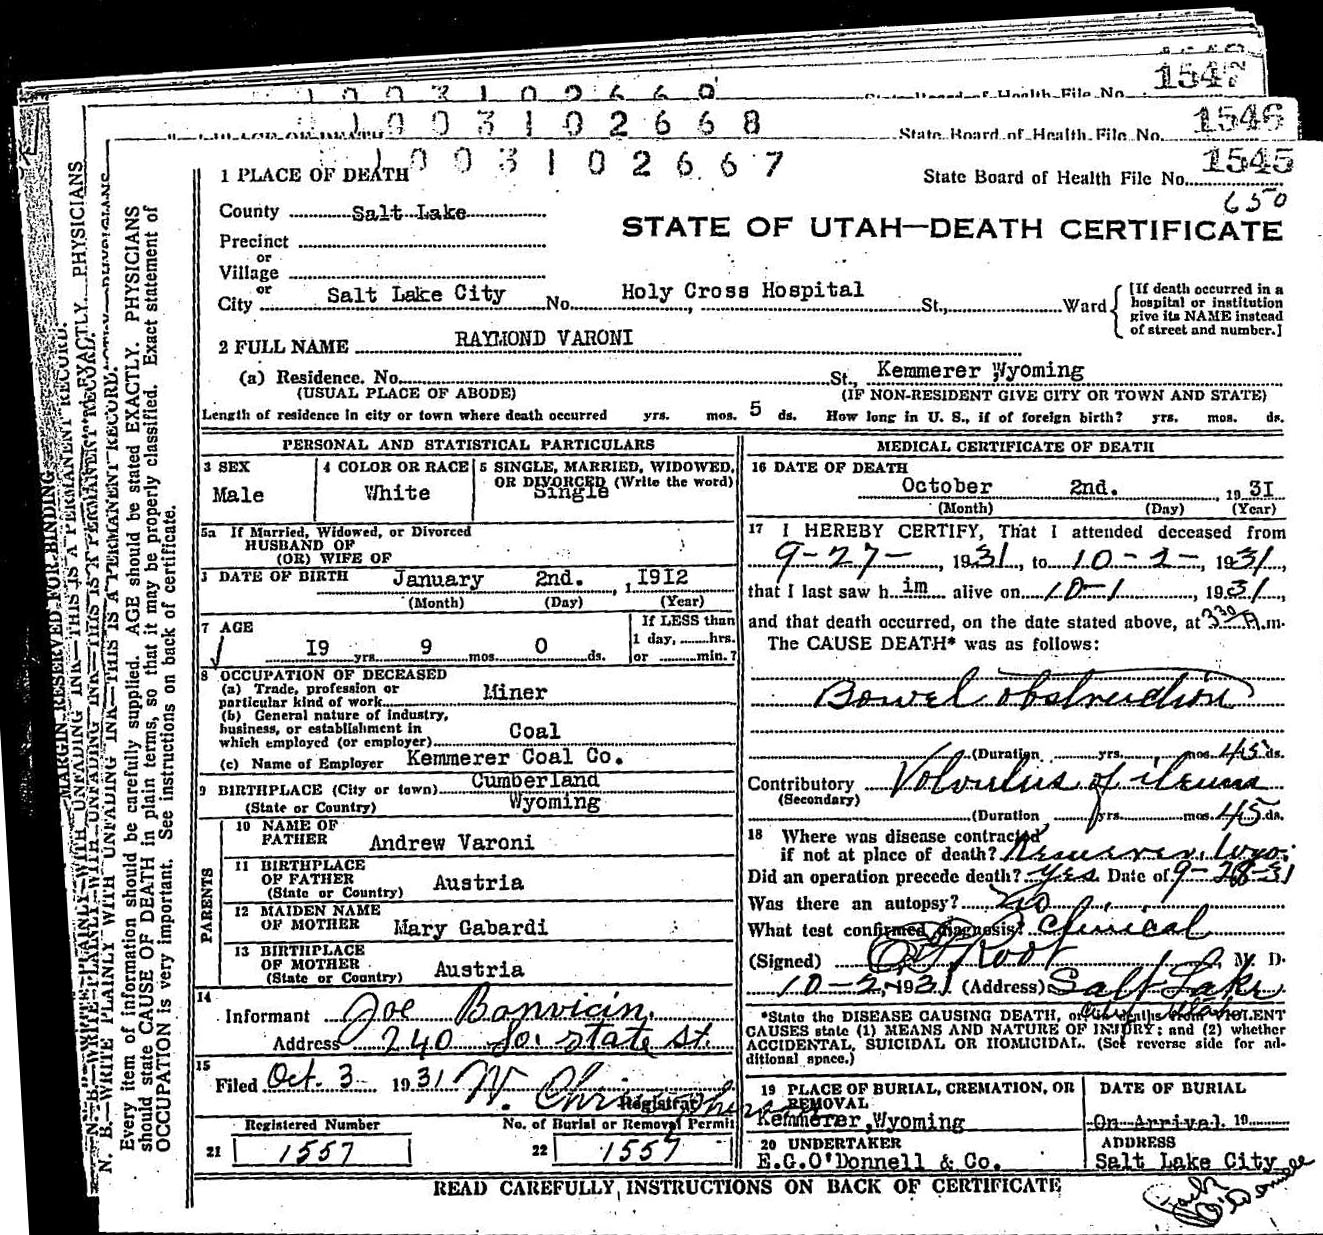 1547
State Board of Health File No.
1003102669
1546
State Board of Health File No.
1003102668
1545
1003102667
1 PLACE OF DEATH
State Board of Health File No.
650
County Salt Lake
STATE OF UTAH—DEATH CERTIFICATE
Precinct
or
Village
or
City Salt Lake City No. Holy Cross Hospital St., Ward
[If death occurred in a hospital or institution give its NAME instead of street and number.]
2 FULL NAME RAYMOND VARONI
(a) Residence. No. St., Kemmerer Wyoming
(USUAL PLACE OF ABODE) (IF NON-RESIDENT GIVE CITY OR TOWN AND STATE)
Length of residence in city or town where death occurred yrs. mos. 5 ds. How long in U. S., if of foreign birth? yrs. mos. ds.
PERSONAL AND STATISTICAL PARTICULARS
3 SEX 4 COLOR OR RACE 5 SINGLE, MARRIED, WIDOWED,
OR DIVORCED (Write the word)
Male White Single
5a If Married, Widowed, or Divorced
HUSBAND OF
(OR) WIFE OF
DATE OF BIRTH January 2nd. , 1912
(Month) (Day) (Year)
7 AGE
If LESS than
1 day, hrs.
or min.?
I9 yrs. 9 mos. 0 ds.
8 OCCUPATION OF DECEASED
(a) Trade, profession or
particular kind of work Miner
(b) General nature of industry,
business, or establishment in
which employed (or employer) Coal
(c) Name of Employer Kemmerer Coal Co.
9 BIRTHPLACE (City or town) Cumberland
(State or Country) Wyoming
PARENTS
10 NAME OF
FATHER Andrew Varoni
11 BIRTHPLACE
OF FATHER
(State or Country) Austria
12 MAIDEN NAME
OF MOTHER Mary Gabardi
13 BIRTHPLACE
OF MOTHER
(State or Country) Austria
14
Informant Joe Bonvicin.
Address 240 So. State St.
15
Filed Oct. 3 1931 W.
Registrar
Registered Number No. of Burial or Removal Permit
21 1557 22 1557
MEDICAL CERTIFICATE OF DEATH
16 DATE OF DEATH
October 2nd. , 1931
(Month) (Day) (Year)
17 I HEREBY CERTIFY, That I attended deceased from
9-27-, 1931, to 10-2-, 1931,
that I last saw him alive on 10-1, 1931,
and that death occurred, on the date stated above, at 3 30 A.m.
The CAUSE DEATH* was as follows:
Bowel obstruction
(Duration yrs. mos. ds.
Contributory Volvulus of ileum
(Secondary)
(Duration yrs. mos. ds.
18 Where was disease contracted
if not at place of death? Kemmerer, Wyo.
Did an operation precede death? Yes Date of 9-28-31
Was there an autopsy? no
What test confirmed diagnosis? Clinical
(Signed) Root, M. D.
10-2, 1931 (Address) Salt Lake
*State the DISEASE CAUSING DEATH, or VIOLENT
CAUSES state (1) MEANS AND NATURE OF INJURY; and (2) whether
ACCIDENTAL, SUICIDAL OR HOMICIDAL. (See reverse side for ad-
ditional space.)
19 PLACE OF BURIAL, CREMATION, OR
REMOVAL
Kemmerer, Wyoming
DATE OF BURIAL
On Arrival 19
20 UNDERTAKER ADDRESS
E.G.O'Donnell & Co. Salt Lake City
READ CAREFULLY, INSTRUCTIONS ON BACK OF CERTIFICATE
O'Donnell
MARGIN RESERVED FOR BINDING
N. B.—WRITE PLAINLY WITH UNFADING INK—THIS IS A PERMANENT RECORD.
Every item of information should be carefully supplied. AGE should be stated EXACTLY. PHYSICIANS
should state CAUSE OF DEATH in plain terms, so that it may be properly classified. Exact statement of
OCCUPATION is very important. See instructions on back of certificate.